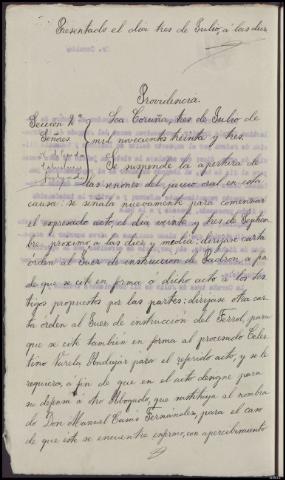 Presentado el día tres de Julio, á las diez
Providencia.
Sección 2ª
Señores
La Coruña, tres de Julio de
mil novecientos treinta y tres.
Se suspende la apertura de
las sesiones del juicio oral en esta
causa: se señala nuevamente para comenzar
el expresado acto, el día veinte y tres de Septiem
bre, próximo a las diez y media; diríjase carta
orden al Juez de instrucción de Padrón a fin
de que se cite en forma á dicho acto á los tes
tigos propuestos por las partes; diríjase otra car
ta orden al Juez de instrucción del Ferrol, para
que se cite tambien en forma al procesado Celes
tino Varela Andujar para el referido acto, y se le
requiera, a fin de que en el acto designe para
su defensa a otro Abogado, que sustituya al nombra
do Don Manuel Casás Fernández, para el caso
de que éste se encuentre enfermo, con apercibimiento